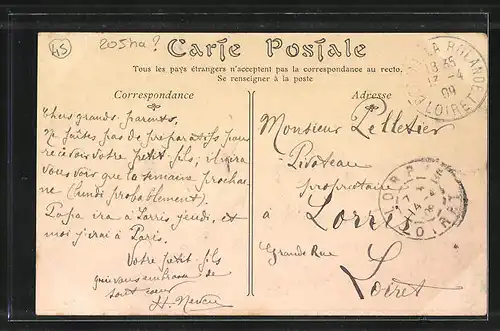 45
205ha?
Carte Postale
Tous les pays étrangers n'acceptent pas la correspondance au recto.
Se renseigner à la poste
Correspondance
Adresse
LA ROLANDE
13 35
12 -4
09
LOIRET
Chers grands-parents,
Ne faites pas de préparatifs pour
recevoir votre petit fils, il n'ira
vous voir que la semaine prochai
ne (lundi probablement).
Papa ira à Lorris jeudi, et
moi j'irai à Paris.
Votre petit fils
qui vous embrasse de
tout cœur
Monsieur Pelletier
propriétaire
à Lorris
Grande Rue
Loiret
LORRIS
LOIRET